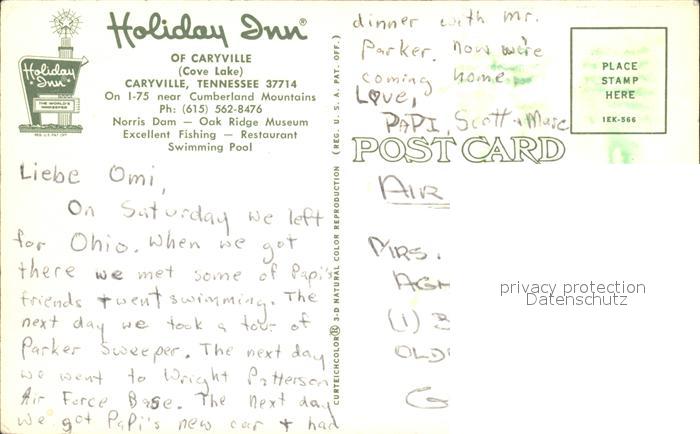 Holiday Inn®
OF CARYVILLE
(Cove Lake)
CARYVILLE, TENNESSEE 37714
On I-75 near Cumberland Mountains
Ph: (615) 562-8476
Norris Dam — Oak Ridge Museum
Excellent Fishing — Restaurant
Swimming Pool
Holiday Inn
THE WORLD'S
INNKEEPER
REG. U.S. PAT. OFF.
Liebe Omi,
On Saturday we left
for Ohio. When we got
there we met some of Papi's
friends + went swimming. The
next day we took a tour of
Parker Sweeper. The next day
we went to Wright Patterson
Air Force Base. The next day
we got Papi's new car + had
dinner with Mr.
Parker. Now we're
coming home.
Love,
PAPI, Scott + Marc
CURTEICHCOLOR® 3-D NATURAL COLOR REPRODUCTION (REG. U.S.A. PAT. OFF.)
PLACE
STAMP
HERE
1EK-566
POST CARD
AIR
MRS.
AGH
(1) B
OLD
G
privacy protection
Datenschutz